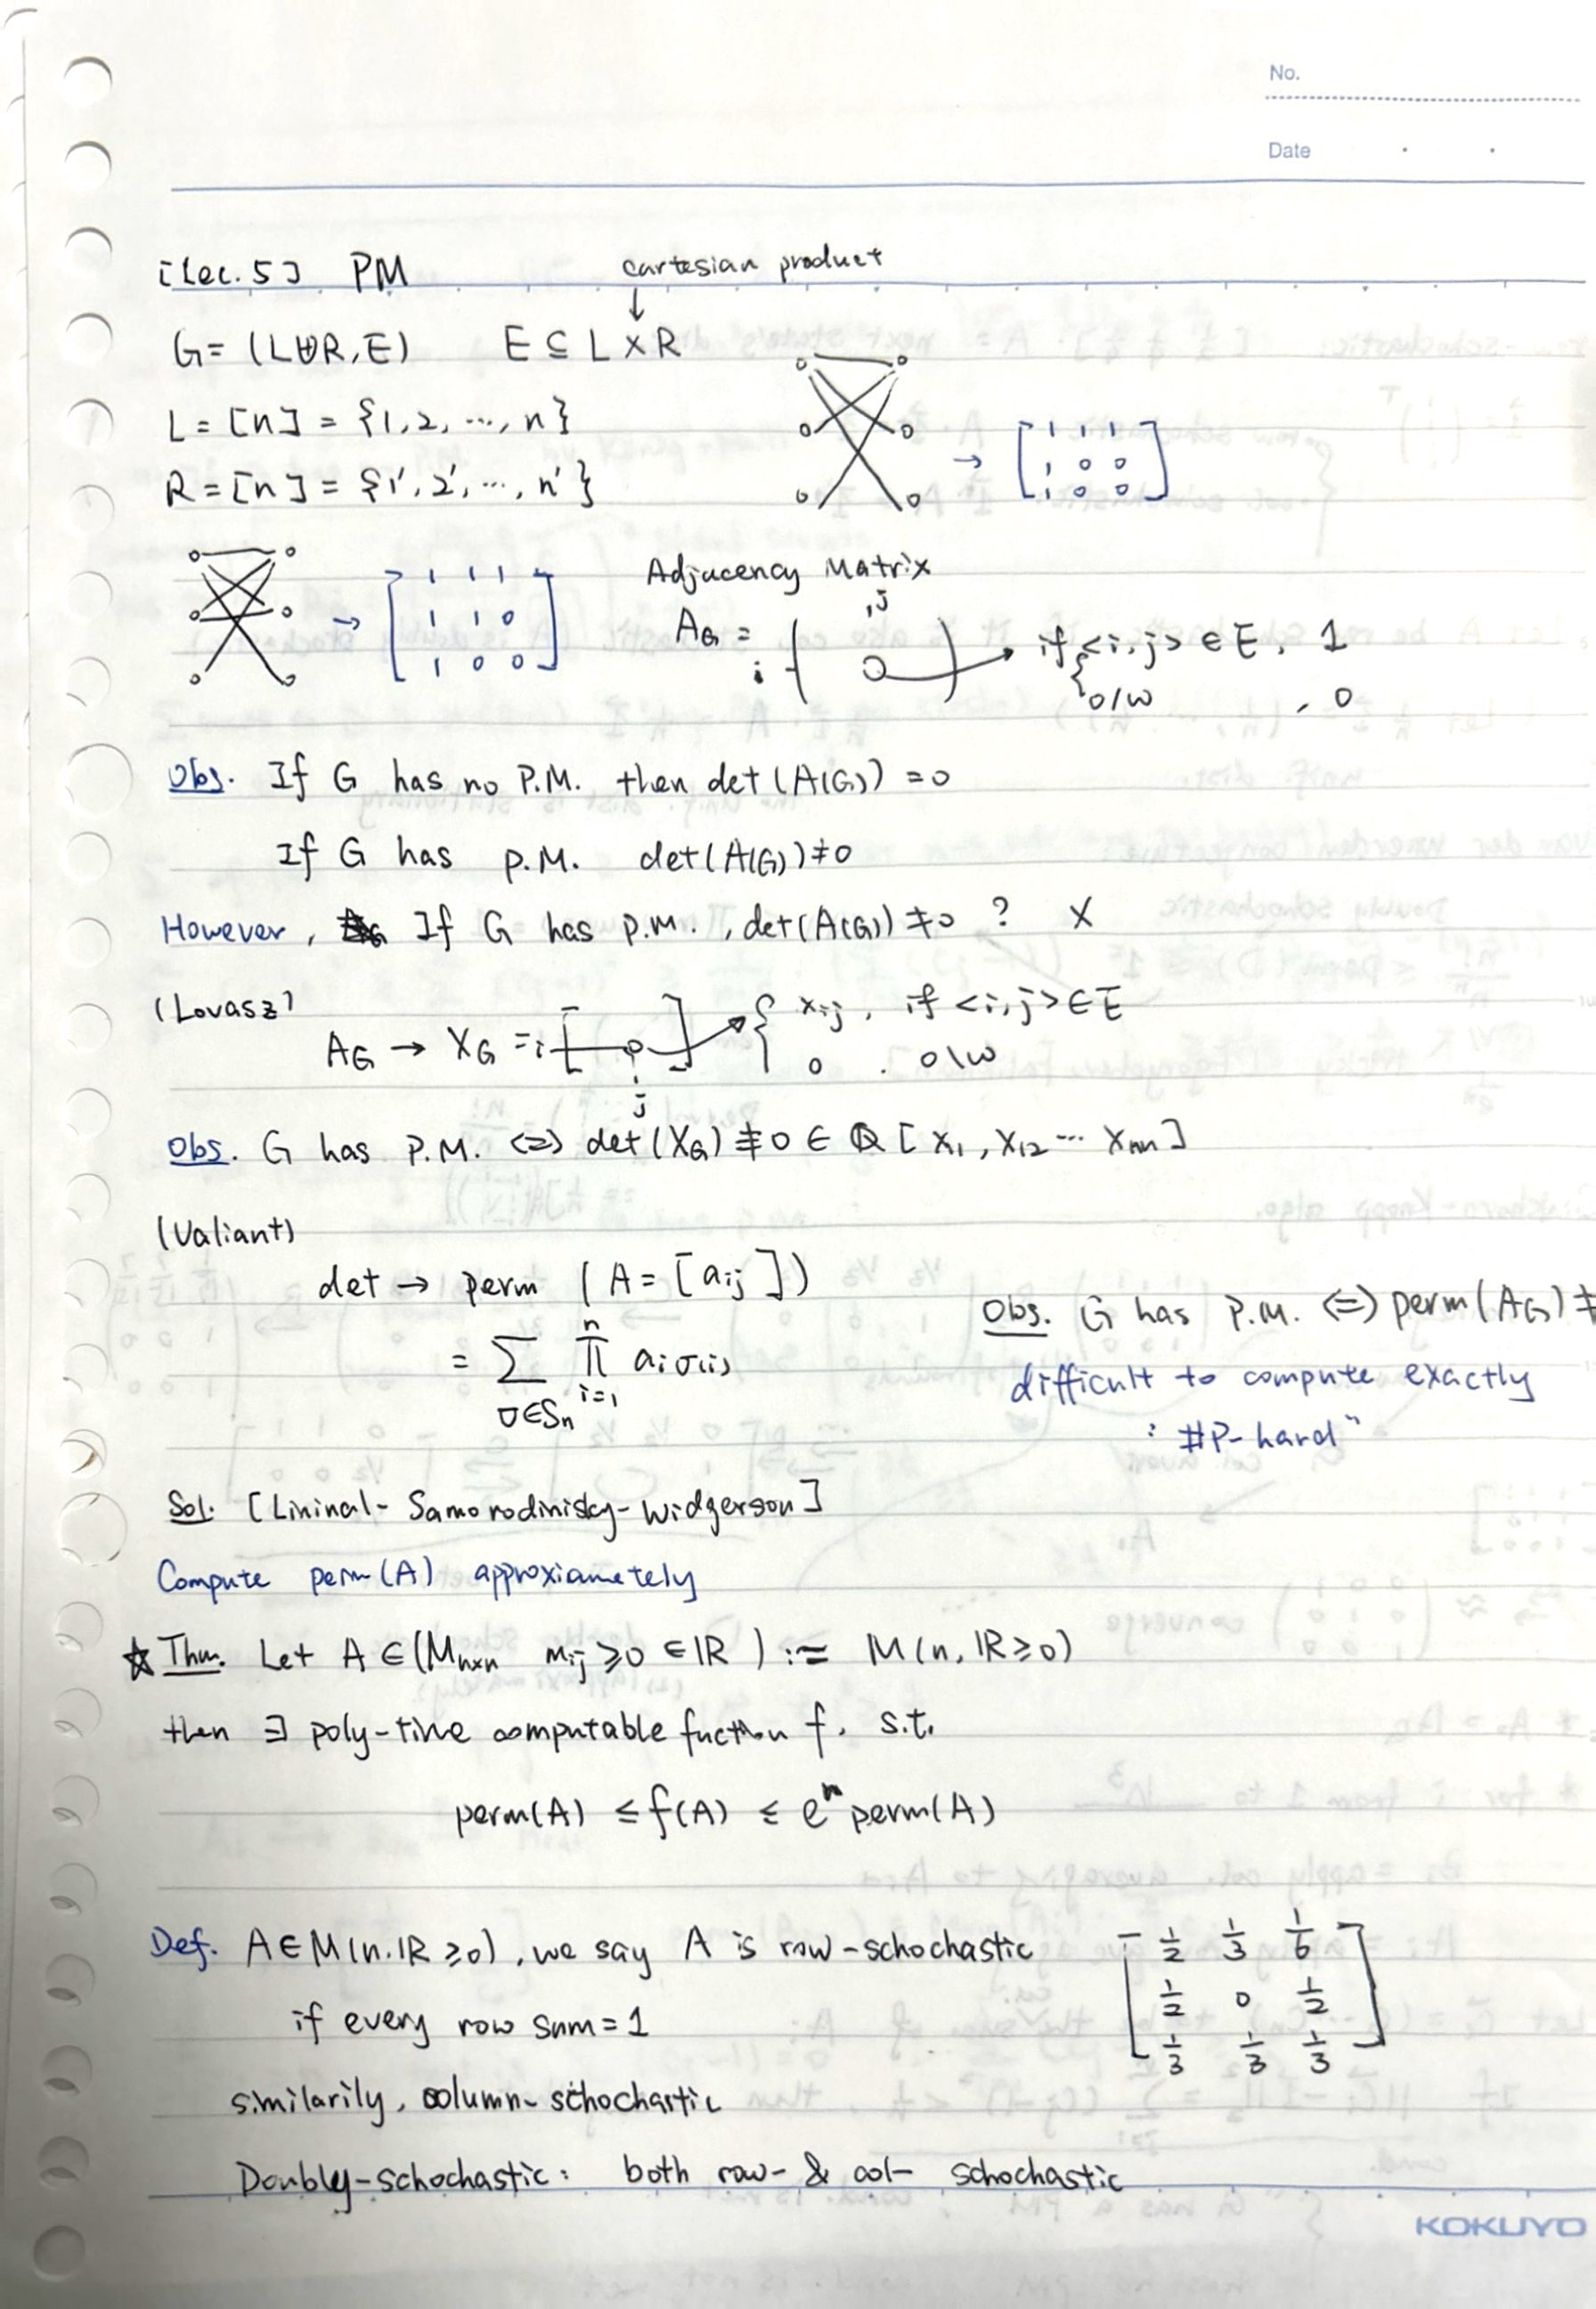 No.
Date
[Lec.5] PM
cartesian product
↓
G= (L⊎R,E) E ⊆ L×R
L = [n] = {1,2, ..., n}
R = [n] = {1', 2', ..., n'}
→ [ 1 1 1
1 0 0
1 0 0 ]
→ [ 1 1 1
1 1 0
1 0 0 ]
Adjacency Matrix
j
A_G = i ( ) → { if <i,j> ∈ E, 1
o/w , 0
Obs. If G has no P.M. then det(A(G)) = 0
If G has P.M. det(A(G)) ≠ 0
However, If G has P.M., det(A(G)) ≠ 0 ? X
(Lovasz)
A_G → X_G = i [ ] → { x_ij , if <i,j> ∈ E
0 . o\w
j
Obs. G has P.M. <=> det(X_G) ≢ 0 ∈ Q [x_1, x_12 ... x_nn]
(Valiant)
det → perm (A = [a_ij])
= Σ_{σ∈S_n} Π_{i=1}^{n} a_{iσ(i)}
Obs. G has P.M. <=> perm(A_G) ≠
difficult to compute exactly
: #P-hard"
Sol. [Lininal- Samorodinisky- Widgerson]
Compute perm(A) approxiametely
☆ Thm. Let A ∈ (M_{n×n} m_ij ≥ 0 ∈ ℝ) := M(n, ℝ≥0)
then ∃ poly-time computable fuction f. s.t.
perm(A) ≤ f(A) ≤ e^n perm(A)
Def. A ∈ M(n.ℝ≥0), we say A is row-schochastic
if every row sum = 1
[ 1/2 1/3 1/6
1/2 0 1/2
1/3 1/3 1/3 ]
similarily, column-schochastic
Doubly-schochastic: both row- & col- schochastic
KOKUYO